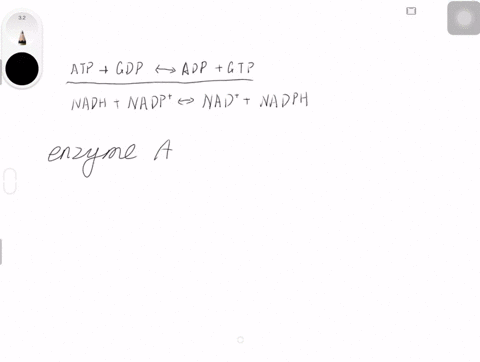 3.2
ATP + GDP ↔ ADP + GTP
NADH + NADP⁺ ↔ NAD⁺ + NADPH
enzyme A